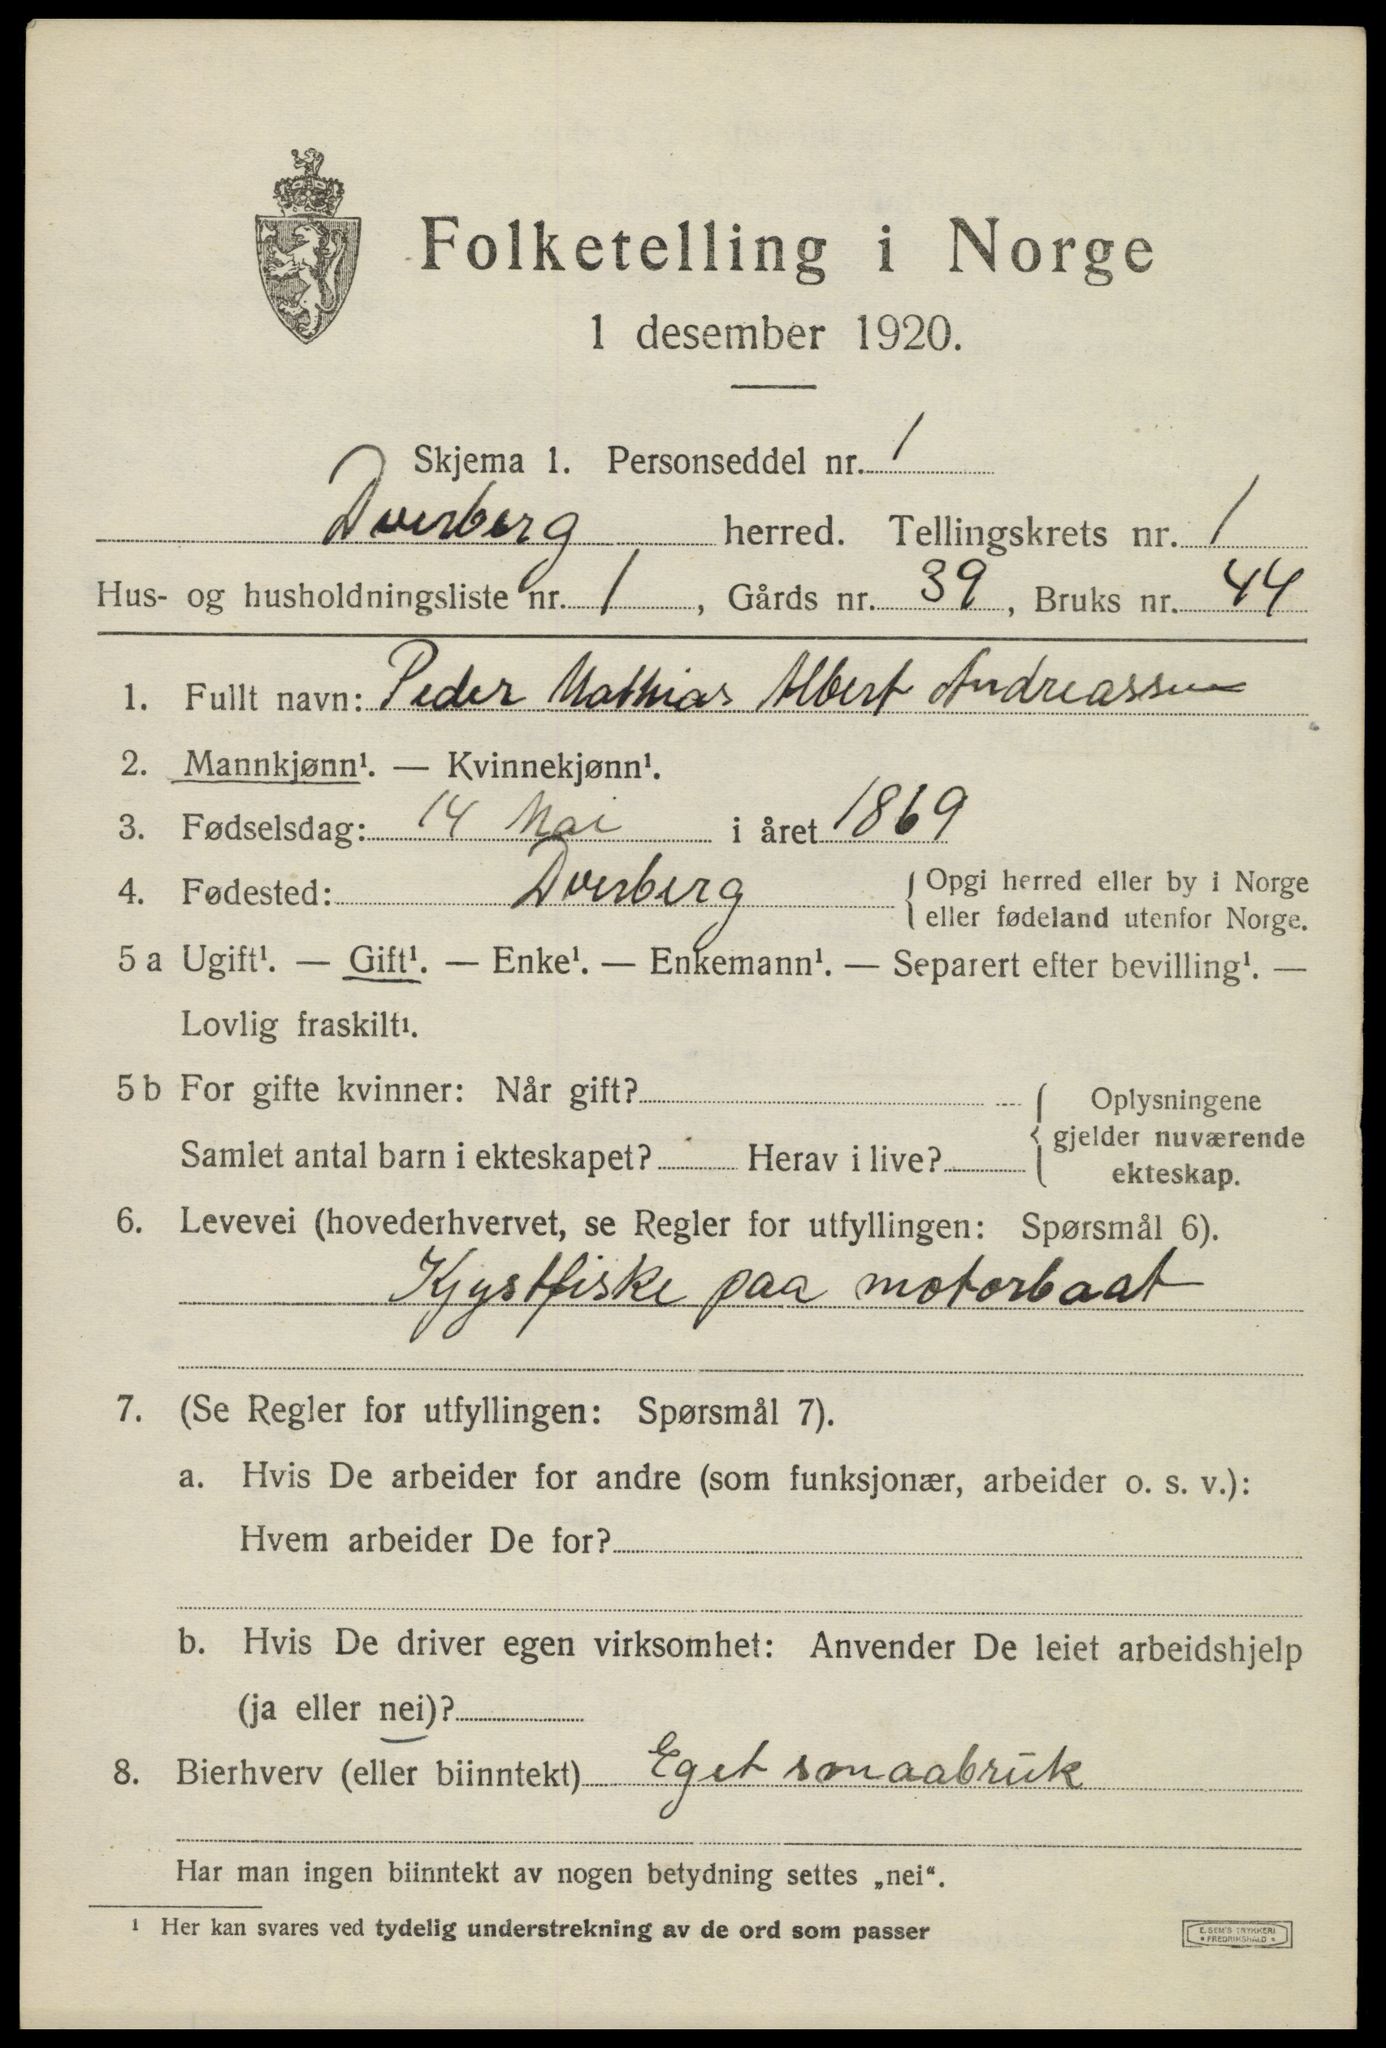 Folketelling i Norge
1 desember 1920.
Skjema 1. Personseddel nr. 1
Dverberg herred. Tellingskrets nr. 1
Hus- og husholdningsliste nr. 1, Gårds nr. 39, Bruks nr. 44
1. Fullt navn: Peder Mathias Albert Andreassen
2. Mannkjønn¹. — Kvinnekjønn¹.
3. Fødselsdag: 14 Mai i året 1869
4. Fødested: Dverberg { Opgi herred eller by i Norge
eller fødeland utenfor Norge.
5 a Ugift¹. — Gift¹. — Enke¹. — Enkemann¹. — Separert efter bevilling¹. —
Lovlig fraskilt¹.
5 b For gifte kvinner: Når gift? { Oplysningene
gjelder nuværende
Samlet antal barn i ekteskapet? Herav i live?
ekteskap.
6. Levevei (hovederhvervet, se Regler for utfyllingen: Spørsmål 6).
Kjystfiske paa motorbaat
7. (Se Regler for utfyllingen: Spørsmål 7).
a. Hvis De arbeider for andre (som funksjonær, arbeider o. s. v.):
Hvem arbeider De for?
b. Hvis De driver egen virksomhet: Anvender De leiet arbeidshjelp
(ja eller nei)?
8. Bierhverv (eller biinntekt) Eget smaabruk
Har man ingen biinntekt av nogen betydning settes „nei“.
¹ Her kan svares ved tydelig understrekning av de ord som passer
E. SEM'S TRYKKERI
* FREDRIKSHALD *